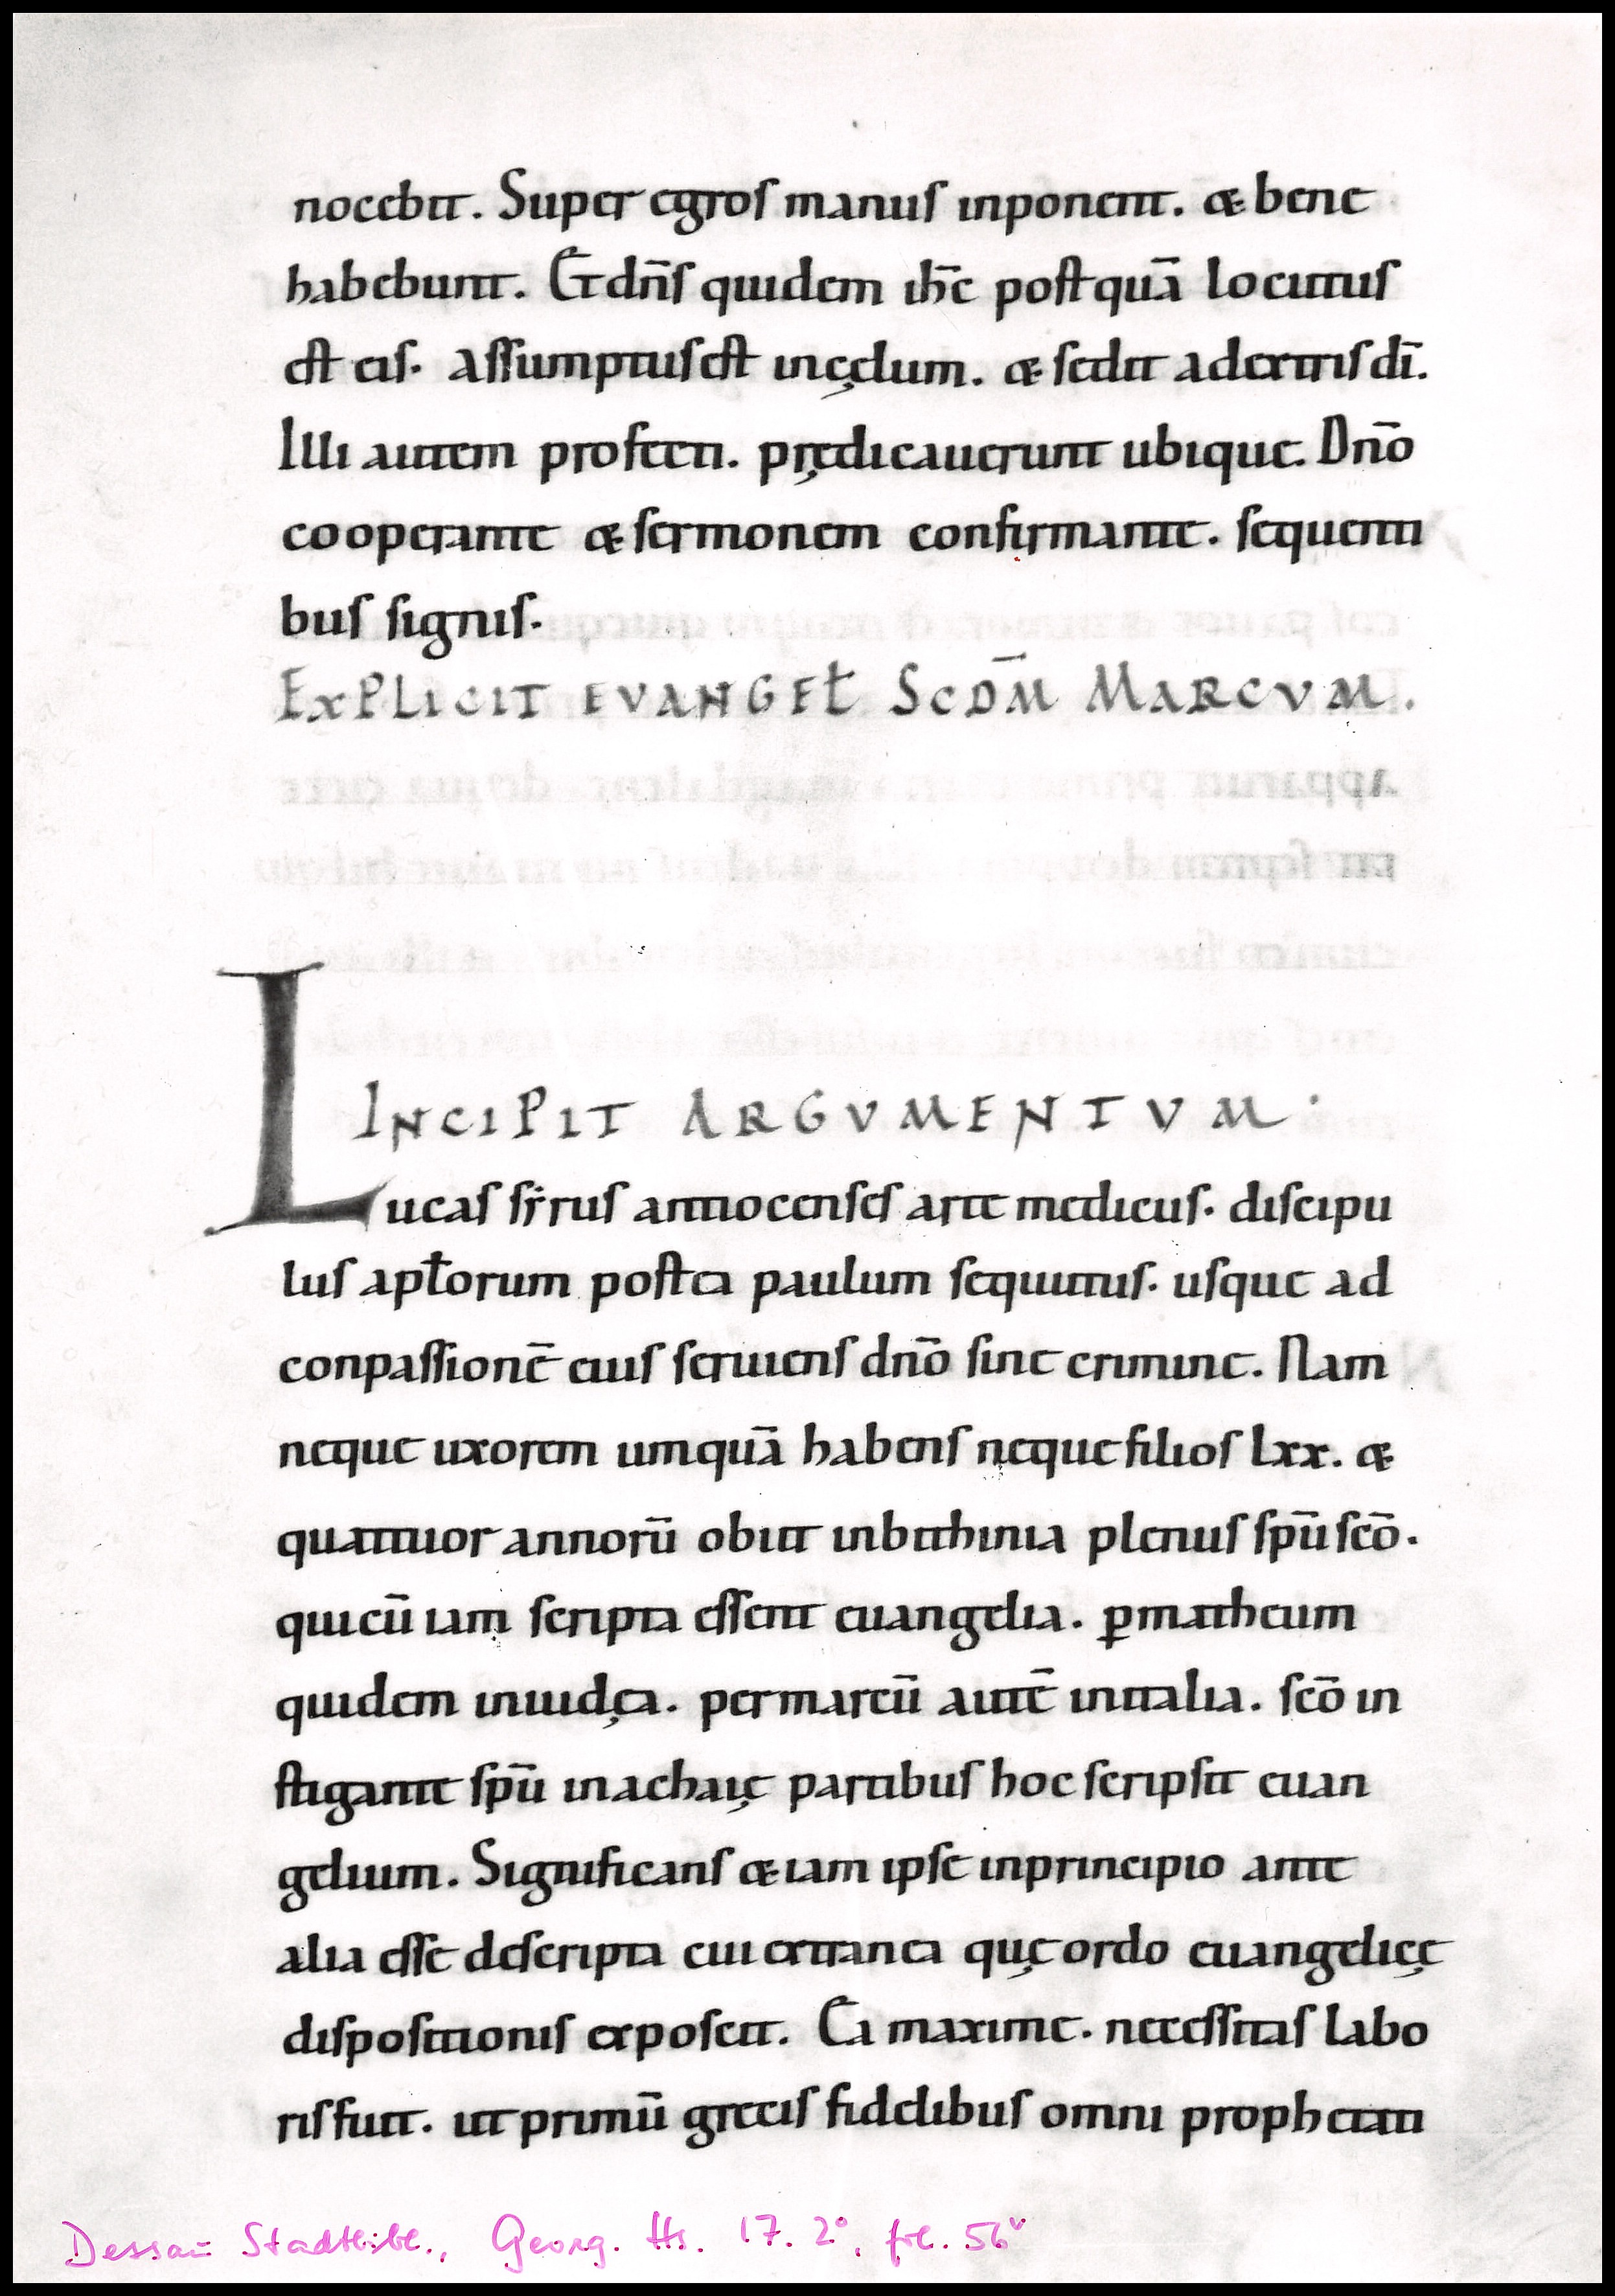 nocebit. Super egros manus inponent. & bene
habebunt. Et dn̄s quidem ih̄c postquā locutus
est eis. assumptus est in cęlum. & sedit a dextris dī.
Illi autem profecti. prędicauerunt ubique. Dnō
cooperante & sermonem confirmante. sequenti
bus signis.
EXPLICIT EVANGEŁ SCDM̄ MARCVM.
INCIPIT ARGVMENTVM·
Lucas sẏrus antiocenses arte medicus. discipu
lus apłorum postea paulum sequutus. usque ad
conpassionē eius seruiens dnō sine crimine. Nam
neque uxorem umquā habens neque filios lxx. &
quattuor annorū obiit in bithinia plenus sp̄u scō.
qui cū iam scripta essent euangelia. ꝑ matheum
quidem in iudęa. per marcū autē in italia. scō in
stigante sp̄u in achaię partibus hoc scripsit euan
gelium. Significans & iam ipse in principio ante
alia esse descripta cui extra ea quę ordo euangelicę
dispositionis exposcit. Ea maxime. necessitas labo
ris fuit. ut primū grecis fidelibus omni prophetati
Dessau Stadtbibl., Georg. Hs. 17. 2°, fol. 56ᵛ